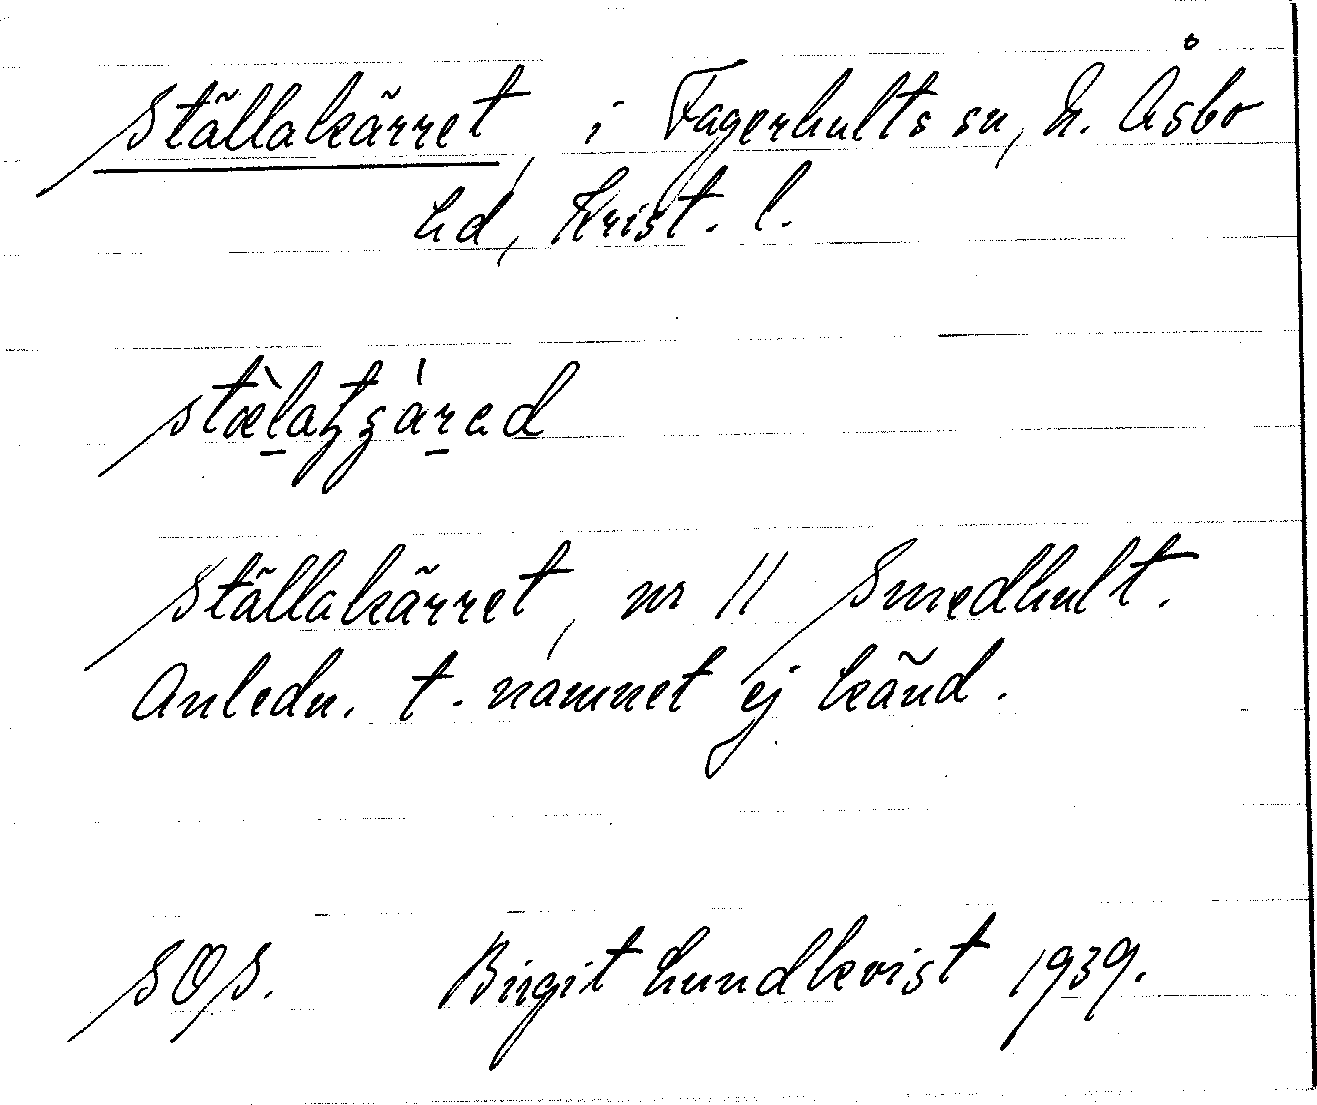 Ställakärret, i Fagerhults sn, N. Åsbo
hd, Krist. l.
Ställakärret, nr 11 Smedhult.
Anledn. t. namnet ej känd.
SOS. Birgit Lundkvist 1939.